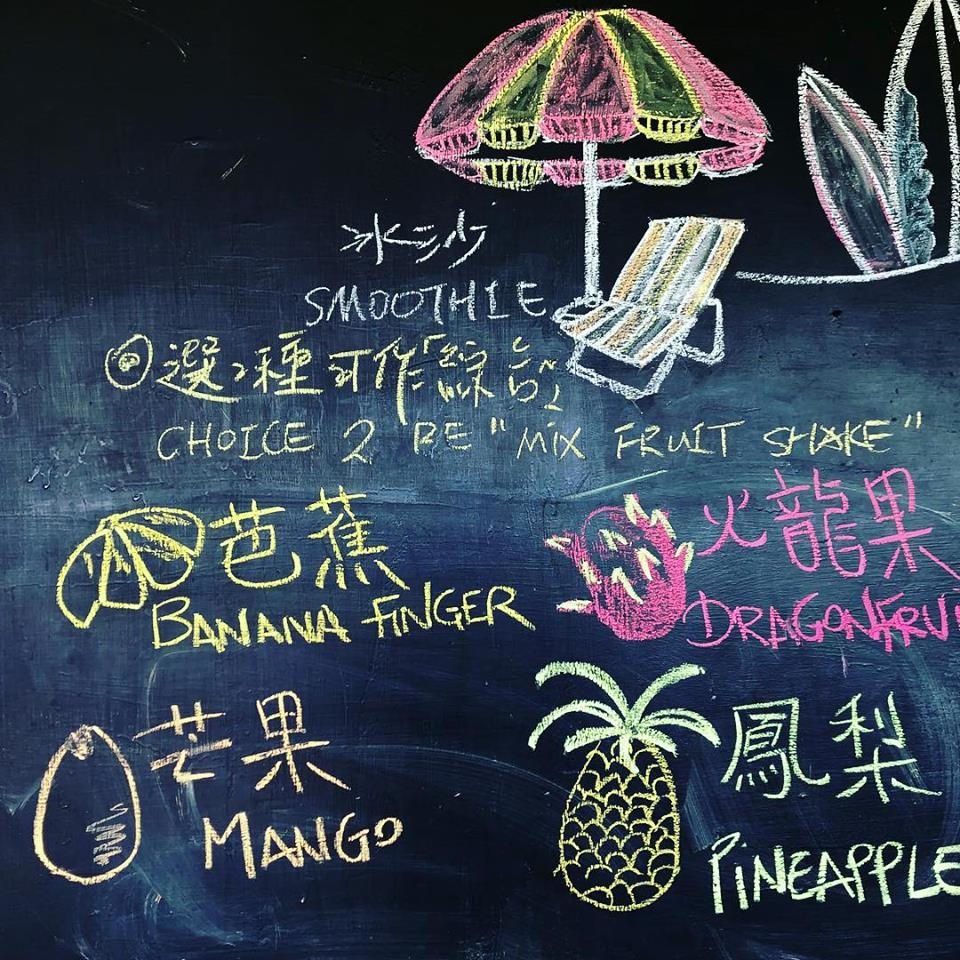 冰沙
SMOOTHIE
選2種可作「綜合」
CHOICE 2 BE "MIX FRUIT SHAKE"
芭蕉
BANANA FINGER
火龍果
DRAGONFRUI
芒果
MANGO
鳳梨
PINEAPPLE